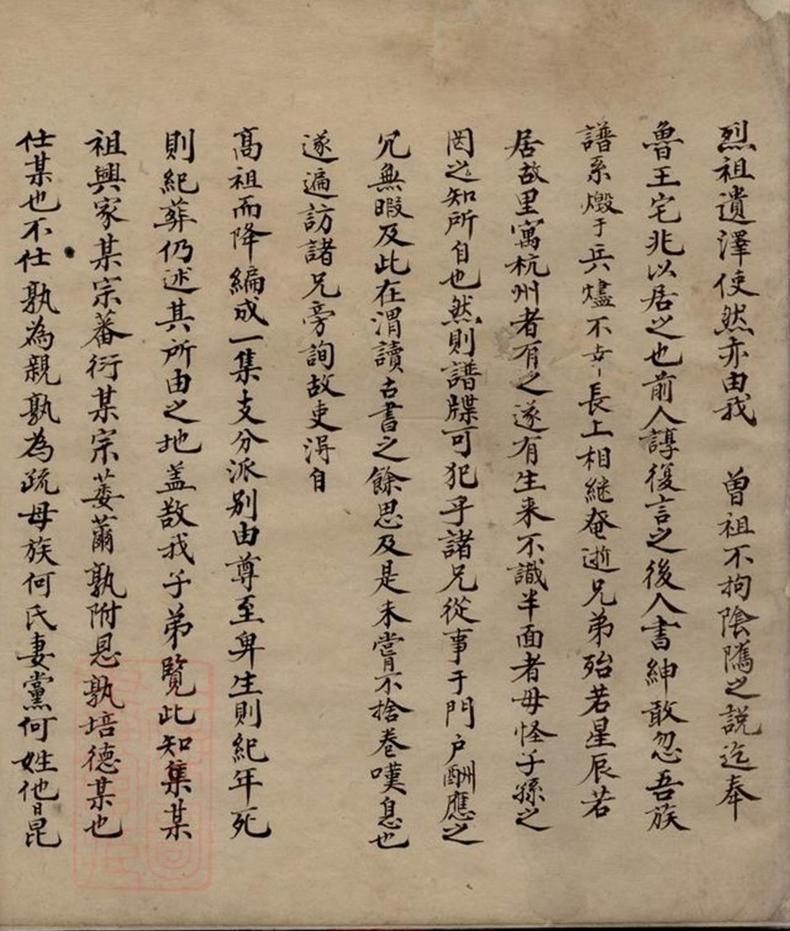 烈祖遺澤使然亦由我　曾祖不拘陰隲之説迄奉
魯王宅兆以居之也前人諄復言之後人書紳敢忽吾族
譜系燬于兵燼不幸長上相継奄逝兄弟殆若星辰若
居故里寓杭州者有之遂有生来不識半面者毋怪子孫之
罔之知所自也然則譜牒可犯乎諸兄從事于門户酬應之
冗無暇及此在渭讀古書之餘思及是未嘗不捨卷嘆息也
遂遍訪諸兄旁詢故吏得自
高祖而降編成一集支分派别由尊至卑生則紀年死
則紀葬仍述其所由之地盖欲我子弟覽此知集某
祖興家某宗蕃衍某宗萎薾孰附恩孰培德某也
仕某也不仕孰為親孰為疏母族何氏妻黨何姓他日昆